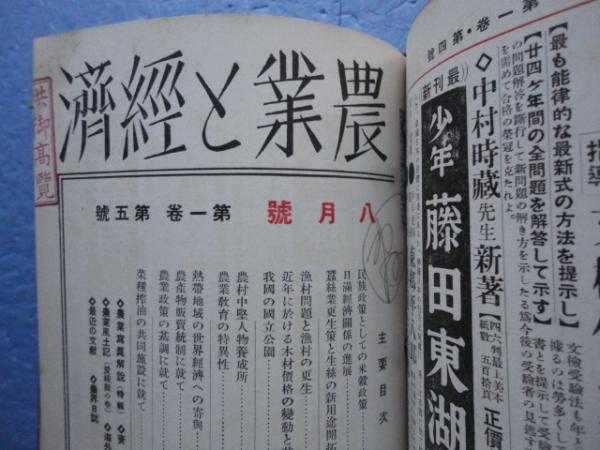 第一卷・第四號
【最も能律的な最新式の方法を提示し】
【廿四ケ年間の全問題を解答して示す】
の問題解答を斷行して新問題の解き方を示したる爲今後の受驗者の見逃す
を固めて合格の榮冠を克たれよ。
文檢受驗法も年と
◇中村時藏先生新著
四六判最上美本
紙數 五百拾頁
正價
最刊新
少年 藤田東湖
指導
農業と經濟
共御高覽
八月號 第一卷 第五號
主要目次
民族政策としての米穀政策
日滿經濟關係の進展
蠶絲業更生策と生絲の新用途開拓
漁村問題と漁村の更生
近年に於ける木材價格の變動と
我國の國立公園
農村中堅人物養成所
農業敎育の特異性
熱帶地域の世界經濟への寄與
農產物販賣統制に就て
農業政策の基調に就て
菜種搾油の共同施設に就て
◆農業寫眞解說(特輯)
◆農業風土記(愛媛縣の卷)
◆最近の文獻
◆農界日誌